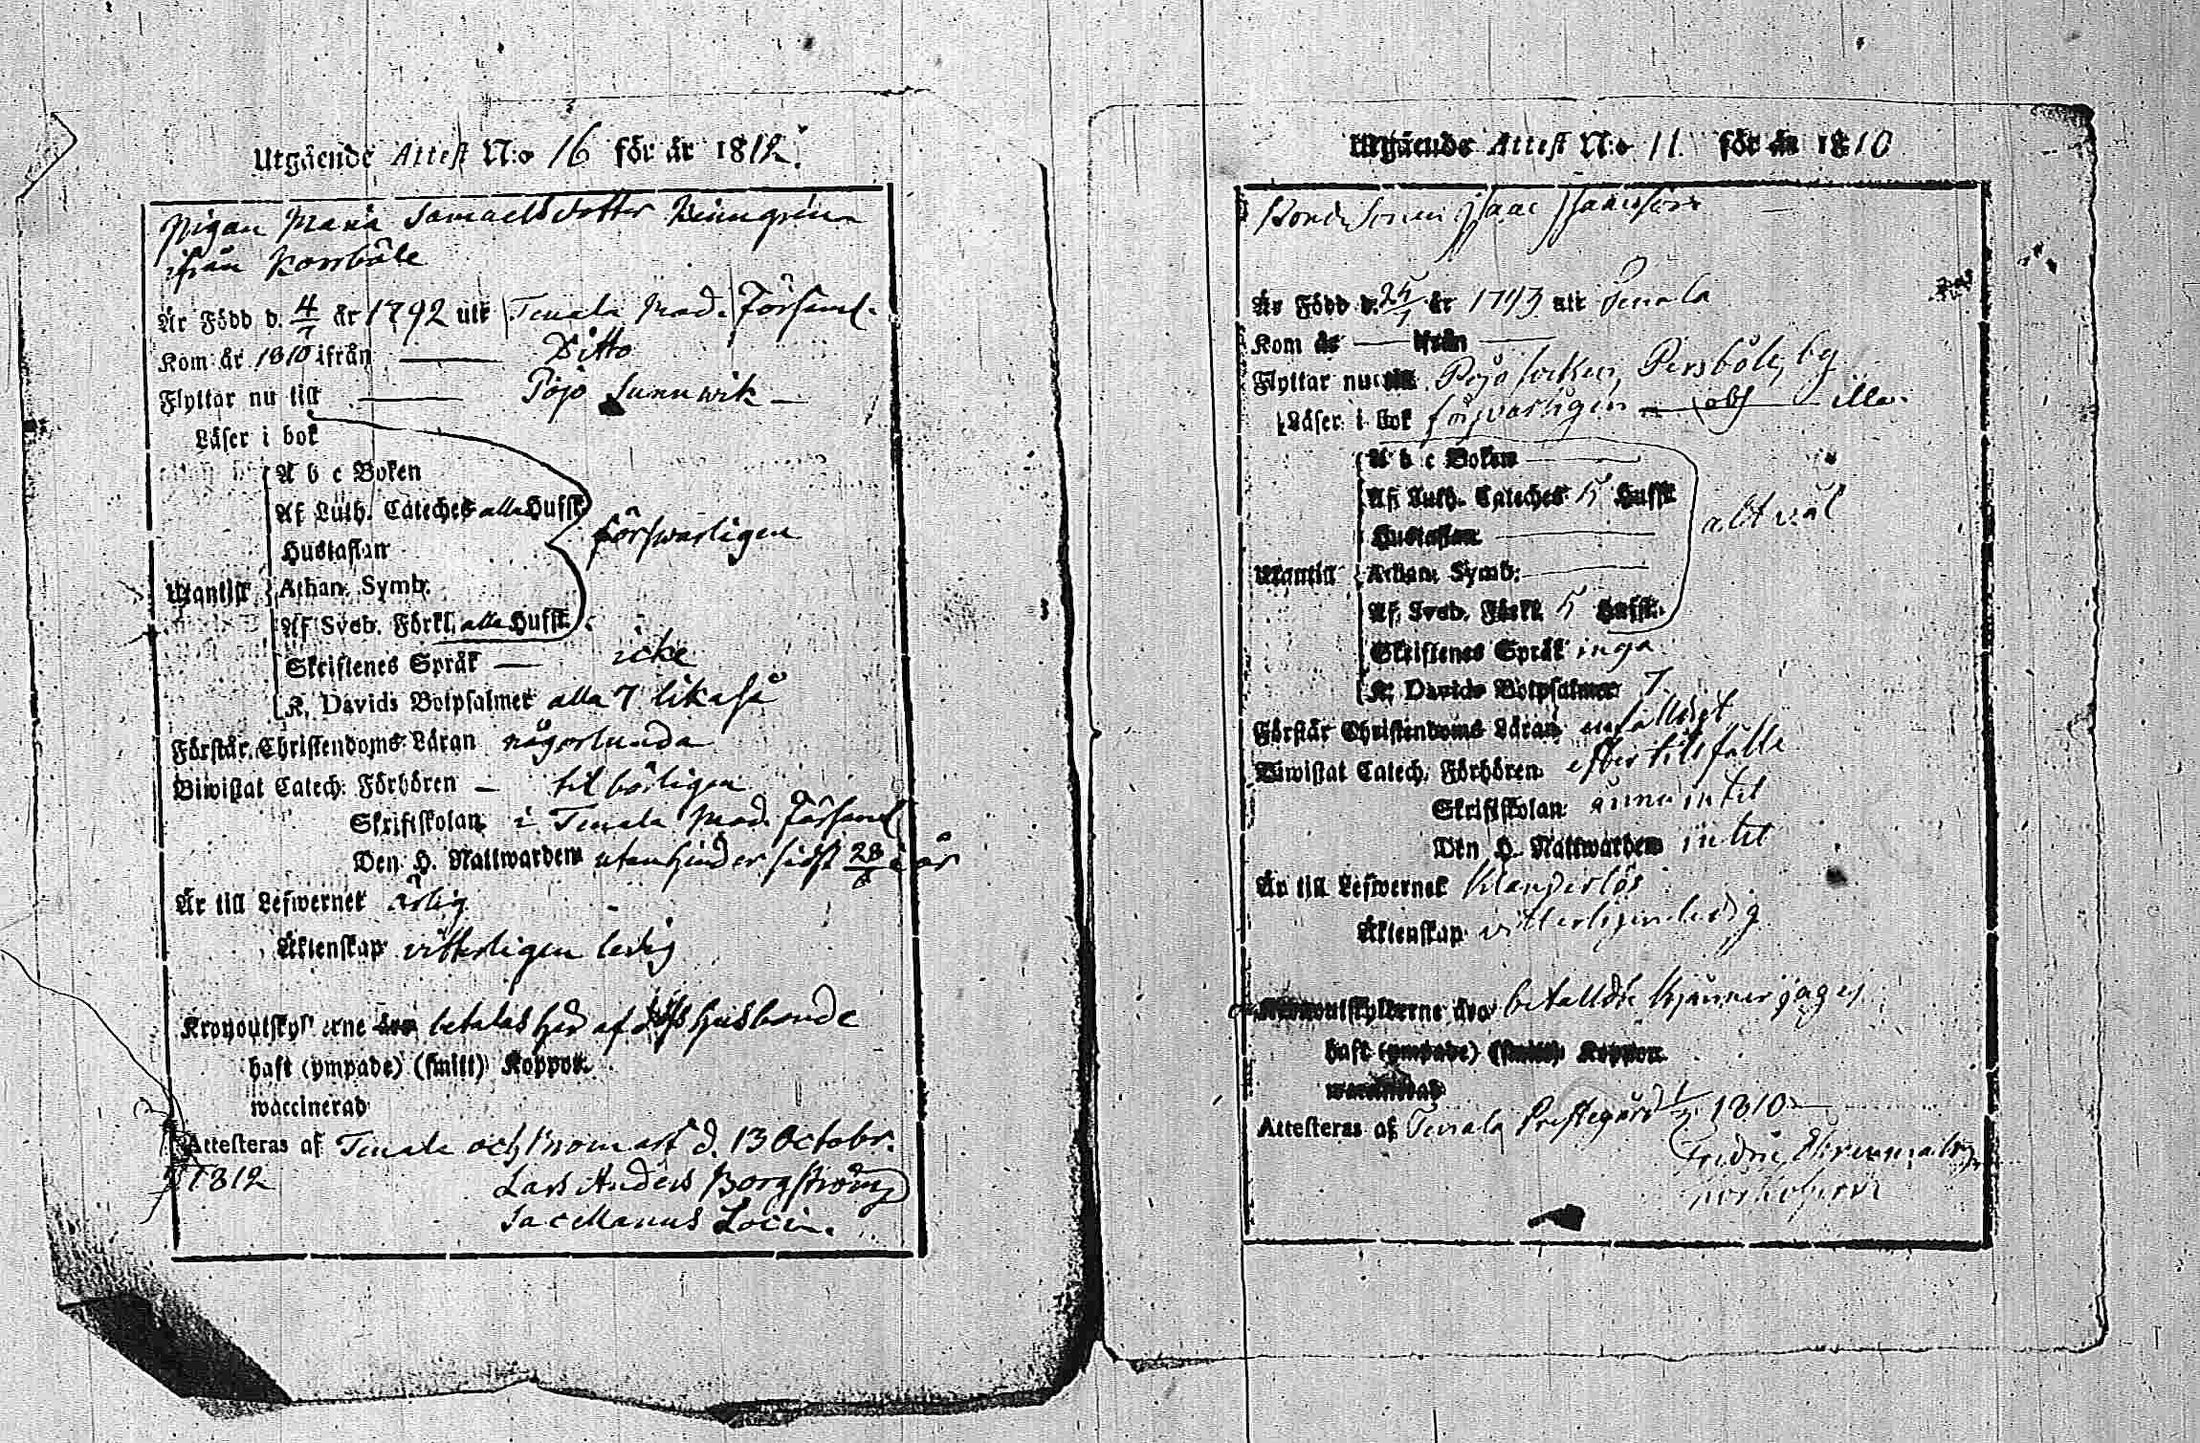 Utgående Attest N:o 16 för år 1812.
Pigan Maria Samuelsdotter
ifrån Korsböle
Är Född d. 4/7 år 1792 uti Tenala Mod. Församl.
Kom år 1810 ifrån — Ditto
Flyttar nu till — Pojo Sunnwik —
Läser i bok
A b c Boken
Af Luth. Cateches alla Hufst.
Hustaflan
försvarligen
Utantill
Athan. Symb.
Af Sveb. Förkl. alla Hufst.
Skriftenes Språk — icke
K. Davids Botpsalmer alla 7 likaså
Förstår Christendoms Läran någorlunda
Biwistat Catech. Förhören — tilbörligen
Skriftskolan i Tenala Mod. Församl
Den H. Nattwarden utan hinder sidst 28/6 i år
Är till Lefwernet ärlig
Äktenskap vitterligen ledig
Kronoutskylderne äro betalas här af dess Husbonde
haft (ympade) (smitt) Koppor.
waccinerad
Attesteras af Tenala och Bromarf d. 13 Octobr.
1812
Lars Anders Borgström
Sacellanus Loci.
Utgående Attest N:o 11. för år 1810
Bonde Sonen Isaac Isaacsson
Är Född d. 25/1 år 1793 uti Tenala
Kom år — ifrån —
Flyttar nu till Pojo Sokken, Persböle by
Läser i bok försvarligen — obs — illa.
A b c Boken —
Af Luth. Cateches 5 Hufst
Hustaflan —
alt väl
Utantill
Athan. Symb. —
Af Sveb. Förkl. 5 Hufst.
Skriftenes Språk inga
K. Davids Botpsalmer 7
Förstår Christendoms Läran enfaldigt
Biwistat Catech. Förhören efter tilfälle
Skriftskolan ännu intet
Den H. Nattwarden intet
Är till Lefwernet klanderlös
Äktenskap vitterligen ledig
Kronoutskylderne äro betallde kjänner jag ej
haft (ympade) (smitt) Koppor.
waccinerad
Attesteras af Tenala Prestegård 1/ 1810
Fredric